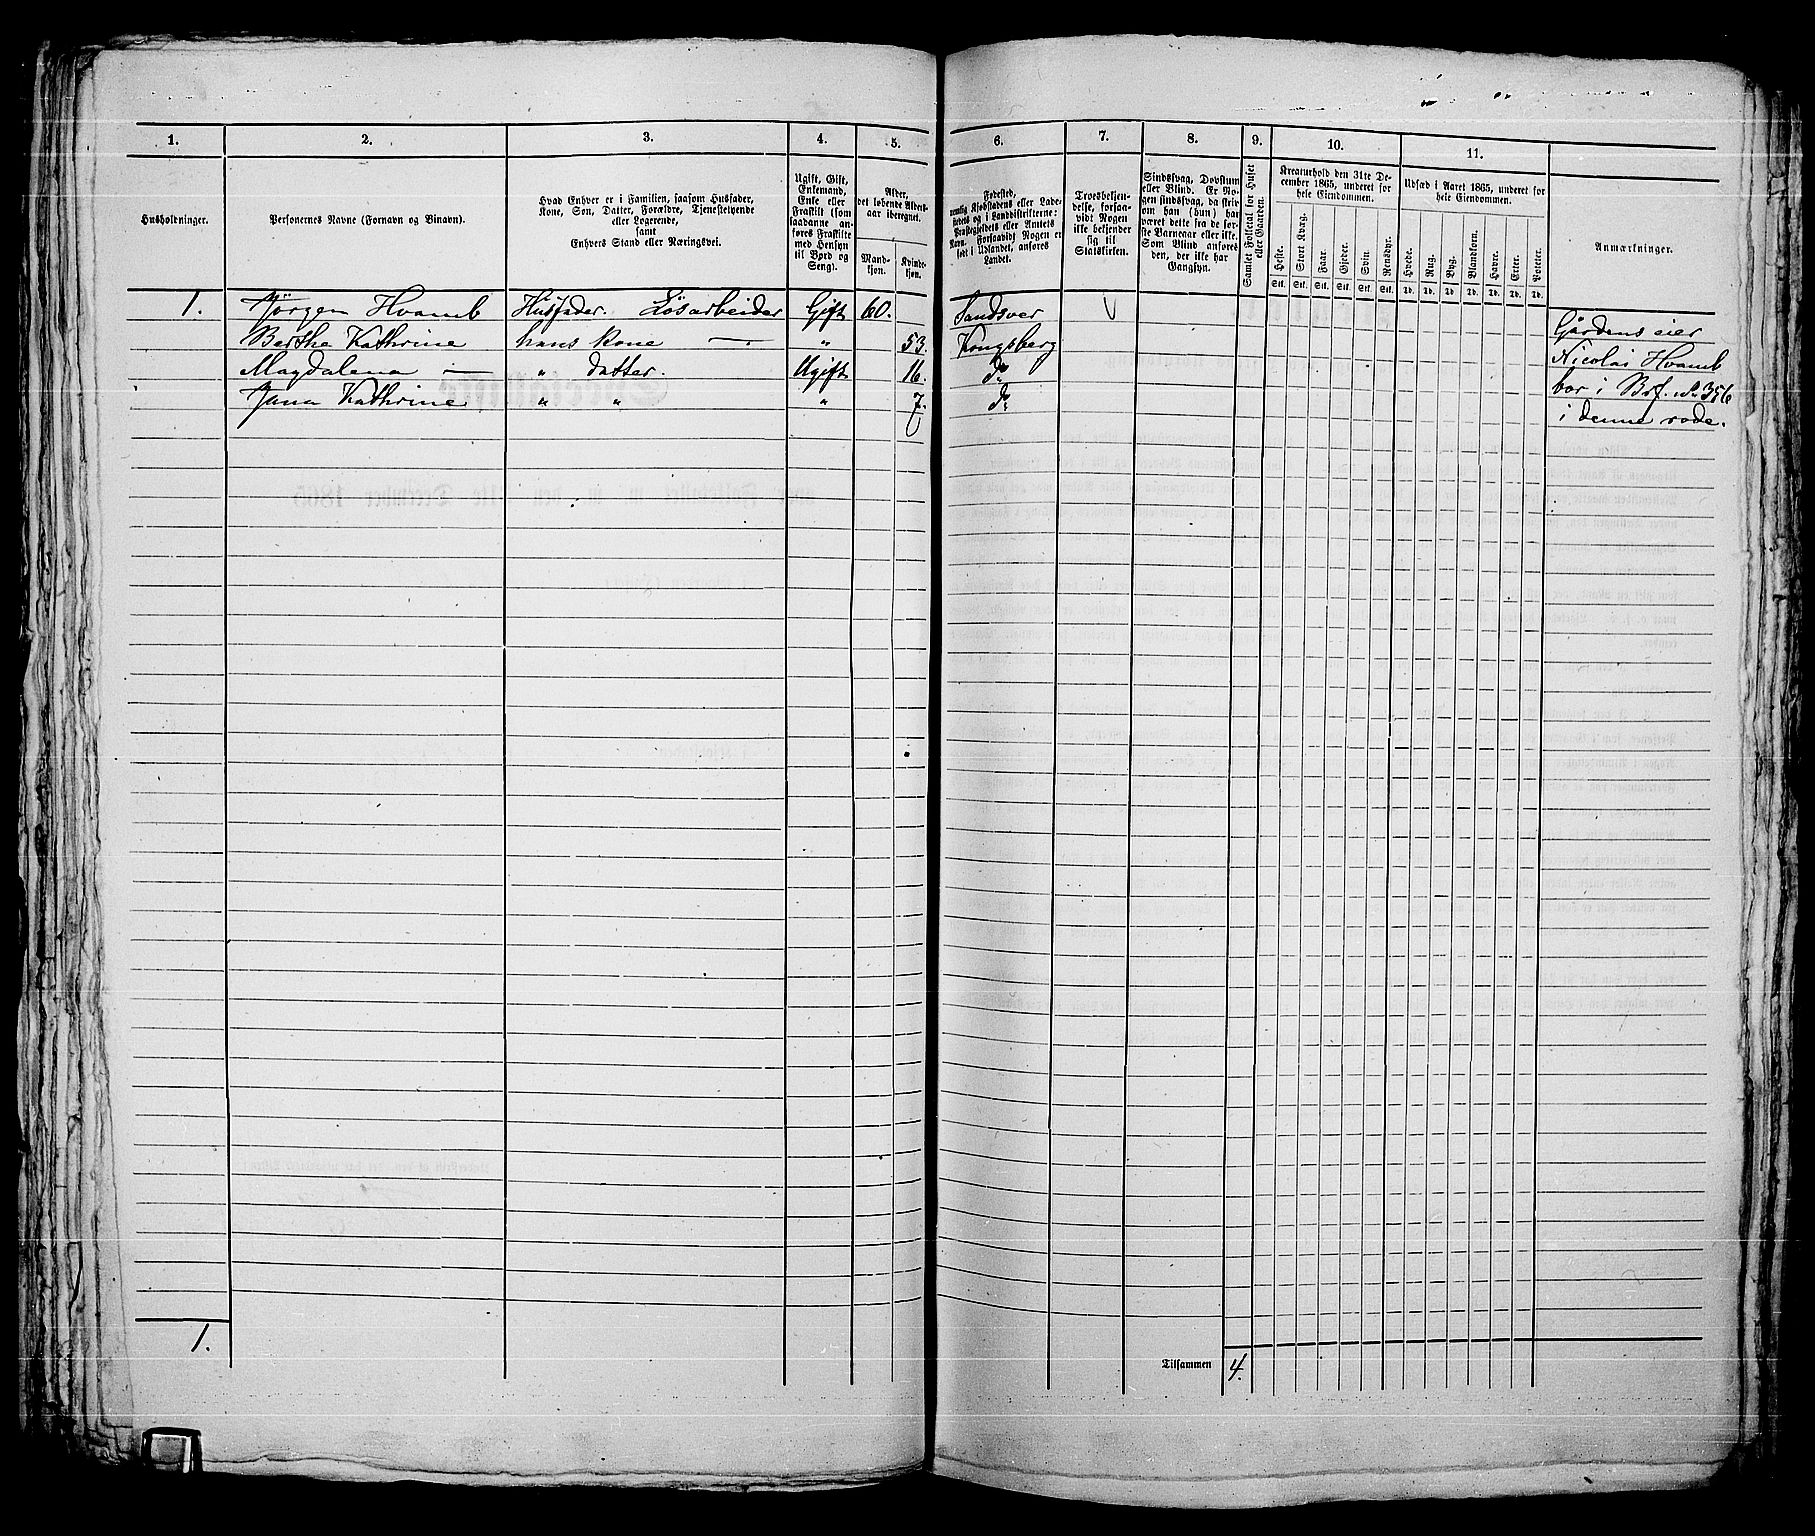 1. 2. 3. 4. 5. 6. 7. 8. 9. 10. 11.
Husholdninger.
Personernes Navne (Fornavn og Binavn).
Hvad Enhver er i Familien, saasom Husfader,
Kone, Søn, Datter, Forældre, Tjenestetyende
eller Logerende,
samt
Enhvers Stand eller Næringsvei.
Ugift, Gift,
Enkemand,
Enke eller
Fraskilt (som
saadanne an-
føres Fraskilte
med Hensyn
til Bord og
Seng).
Alder,
det løbende Alders-
aar iberegnet.
Mand-
kjøn.
Kvinde-
kjøn.
Fødested,
nemlig Kjøbstadens eller Lade-
stedets og i Landdistrikterne:
Præstegjeldets eller Amtets
Navn. Forsaavidt Nogen er
født i Udlandet, anføres
Landet.
Troesbekjen-
delse, forsaa-
vidt Nogen
ikke bekjender
sig til
Statskirken.
Sindssvag, Døvstum
eller Blind. Er No-
gen sindssvag, da skriv
om han (hun) har
været dette fra de før-
ste Barneaar eller ikke.
Som Blind anføres
den, der ikke har
Gangsyn.
Samlet Folketal for Huset
eller Gaarden.
Kreaturhold den 31te De-
cember 1865, underet for
hele Eiendommen.
Heste. Stort Kvæg. Faar. Gjeder. Svin. Rensdyr.
Stk. Stk. Stk. Stk. Stk. Stk.
Udsæd i Aaret 1865, underet for
hele Eiendommen.
Hvede. Rug. Byg. Blandkorn. Havre. Erter. Poteter.
Td. Td. Td. Td. Td. Td. Td.
Anmærkninger.
1. Jörgen Hvamb Husfader. Lösarbeider Gift 60. Sandsver
Berthe Kathrine hans kone — " 53. Kongsberg
Magdalena — " datter. Ugift 16. do
Jana Kathrine " " " 7. do
Gårdens eier
Nicolai Hvamb
bor i Brf. No 356
i denne rode.
1.
Tilsammen 4.